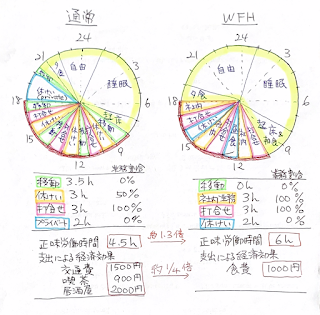 通常
24
21
3
18
6
15
9
12
自由
睡眠
夕食
移動
休けい
打合せ
起床
移動
WFH
24
21
3
18
6
15
9
12
自由
睡眠
夕食
社内
打合せ
休けい
起床&
朝食
移動 3.5h 0%
休けい 3h 50%
打合せ 3h 100%
プライベート 2h 0%
移動 0h 0%
社内実務 3h 100%
打合せ 3h 100%
休けい 2h 0%
正味労働時間 4.5h
約1.3倍
正味労働時間 6h
支出による経済効果
交通費 1500円
喫茶 900円
居酒屋 2000円
約1/4倍
支出による経済効果
食費 1000円